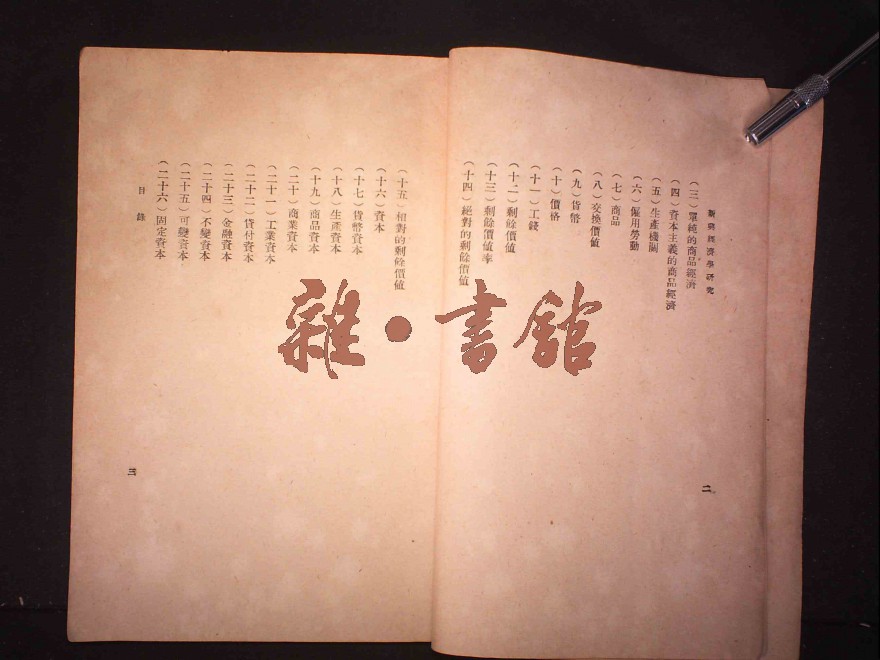 新興經濟學研究
（三）單純的商品經濟
（四）資本主義的商品經濟
（五）生產機關
（六）僱用勞動
（七）商品
（八）交換價值
（九）貨幣
（十）價格
（十一）工錢
（十二）剩餘價值
（十三）剩餘價值率
（十四）絕對的剩餘價值
二
（十五）相對的剩餘價值
（十六）資本
（十七）貨幣資本
（十八）生產資本
（十九）商品資本
（二十）商業資本
（二十一）工業資本
（二十二）貸付資本
（二十三）金融資本
（二十四）不變資本
（二十五）可變資本
（二十六）固定資本
目錄
三
雜•書館